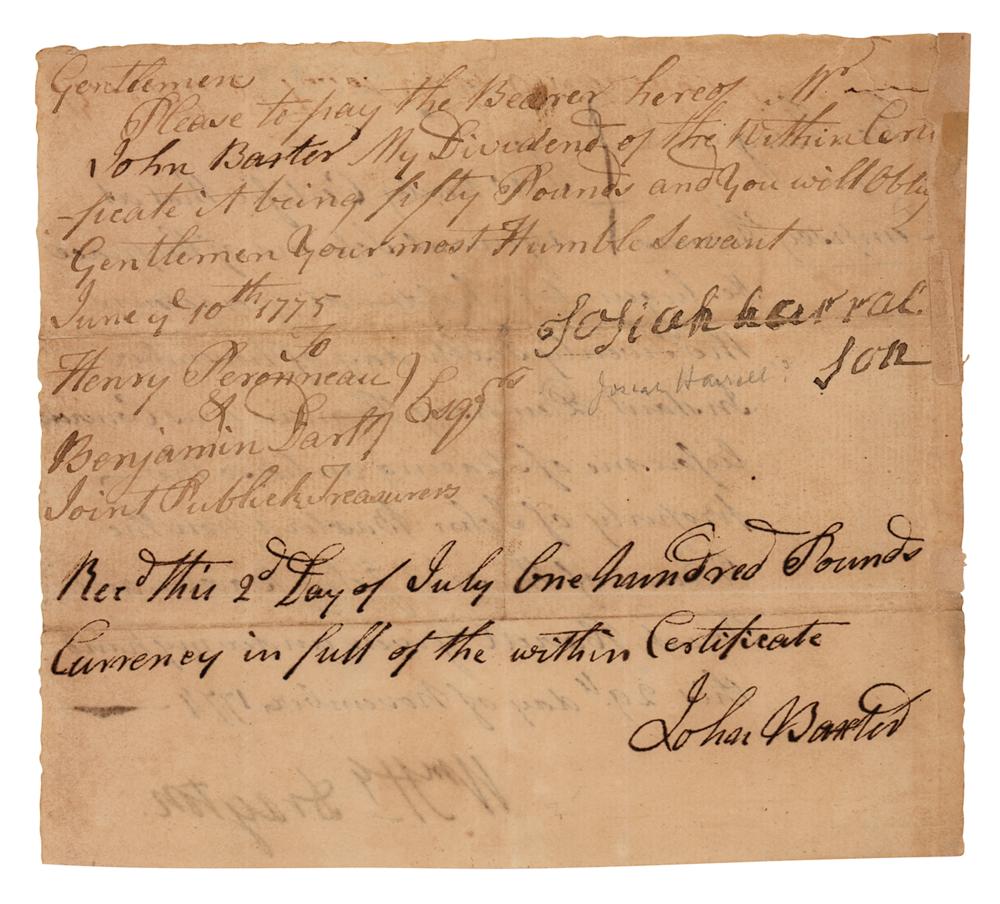 Gentlemen
Please to pay the Bearer hereof Mr
John Baxter My Dividend of the Within Certi
-ficate it being fifty Pounds and You will Oblig
Gentlemen Your most Humble Servant
June ye 10th 1775
Josiah harral.
Son
To
Henry Peronneau
&
Benjamin Dart Esqrs
Joint Publick Treasurers
Josiah Harrell?
Recd this 2d Day of July One hundred Pounds
Currency in full of the within Certificate
John Baxter
day of November 1774
WmH Drayton